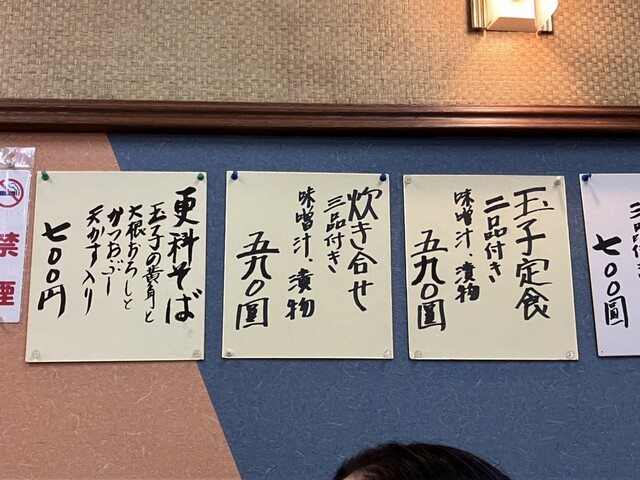 三品付き
七〇〇圓
玉子定食
二品付き
味噌汁、漬物
五九〇圓
炊き合せ
三品付き
味噌汁、漬物
五九〇圓
更科そば
玉子の黄身と
大根おろしと
かつおぶし
天かす入り
七〇〇円
禁
煙